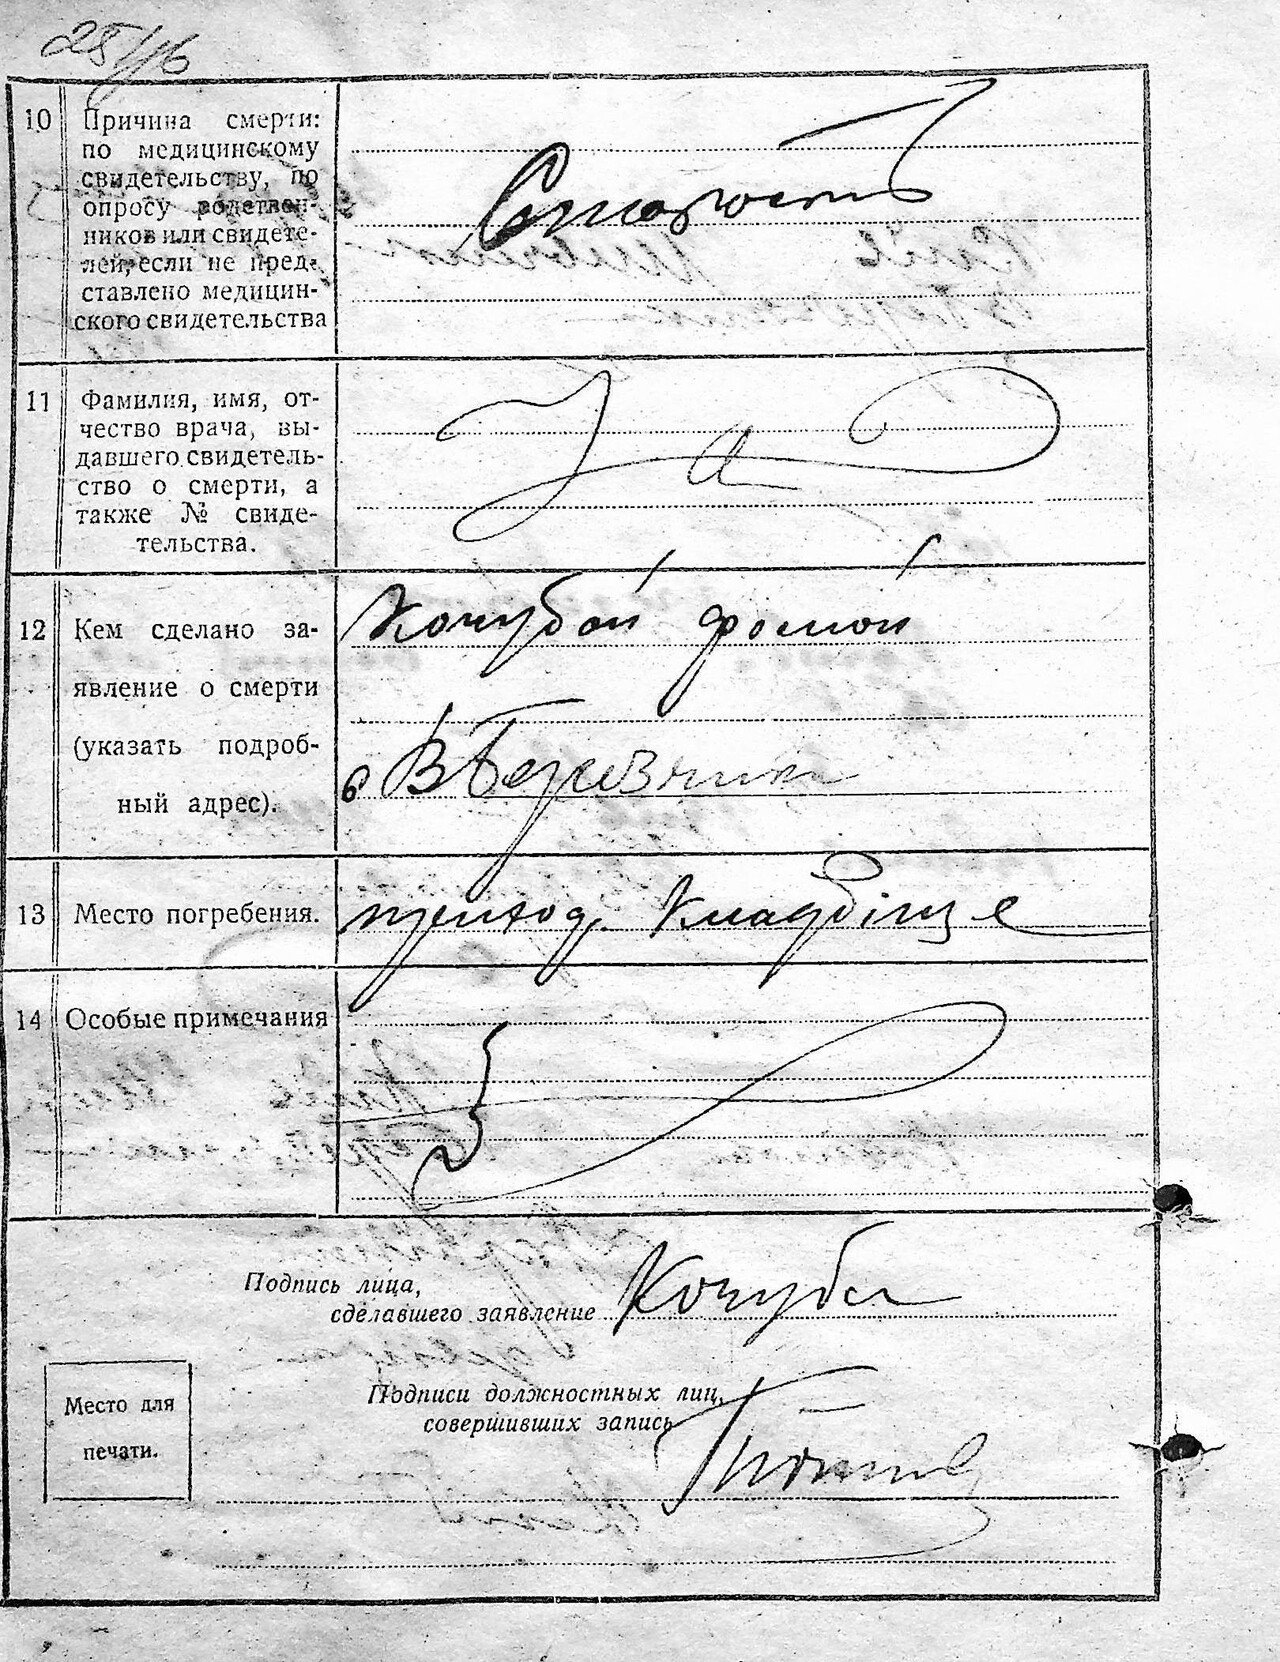 10 Причина смерти: по медицинскому свидетельству, по опросу родственников или свидетелей, если не представлено медицинского свидетельства
Старость
11 Фамилия, имя, отчество врача, выдавшего свидетельство о смерти, а также № свидетельства.
12 Кем сделано заявление о смерти (указать подробный адрес).
Кочубой фомой
13 Место погребения.
приход. Кладбіще
14 Особые примечания
Подпись лица,
сделавшего заявление Кочуба
Подписи должностных лиц,
совершивших запись
Место для
печати.